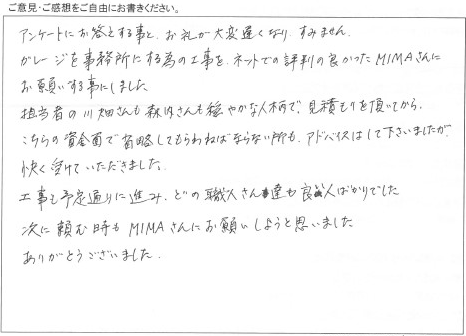 ご意見・ご感想をご自由にお書きください。
アンケートにお答えする事と、お礼が大変遅くなり、すみません。
ガレージを事務所にする為の工事を、ネットでの評判の良かったMIMAさんに
お願いする事にしました
担当者の川畑さんも森内さんも穏やかな人柄で、見積もりを頂いてから、
こちらの資金面で省略してもらわねばならない所も、アドバイスはして下さいましたが、
快く受けていただきました。
工事も予定通りに進み、どの職人さん達も良い人ばかりでした
次に頼む時もMIMAさんにお願いしようと思いました
ありがとうございました。